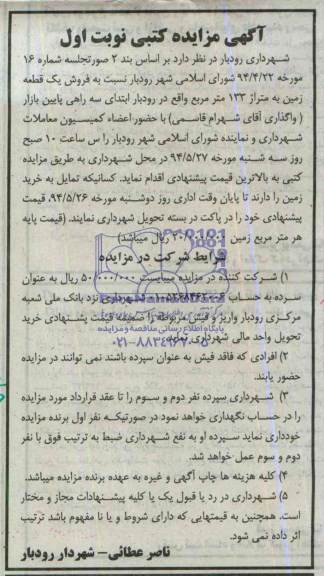 آگهی مزایده کتبی نوبت اول
شهرداری رودبار در نظر دارد بر اساس بند ۲ صورتجلسه شماره ۱۶
مورخه ۹۴/۴/۲۲ شورای اسلامی شهر رودبار نسبت به فروش یک قطعه
زمین به متراژ ۱۳۳ متر مربع واقع در رودبار ابتدای سه راهی پایین بازار
( واگذاری آقای شهرام قاسمی) با حضور اعضاء کمیسیون معاملات
شهرداری و نماینده شورای اسلامی شهر رودبار را س ساعت ۱۰ صبح
روز سه شنبه مورخه ۹۴/۵/۲۷ در محل شهرداری به طریق مزایده
کتبی به بالاترین قیمت پیشنهادی اقدام نماید. کسانیکه تمایل به خرید
زمین را دارند تا پایان وقت اداری روز دوشنبه مورخه ۹۴/۵/۲۶، قیمت
پیشنهادی خود را در پاکت در بسته تحویل شهرداری نمایند. (قیمت پایه
هر متر مربع زمین ریال میباشد)
شرایط شرکت در مزایده
۱) شرکت کننده در مزایده میبایست ۵۰/۰۰۰/۰۰۰ ریال به عنوان
سپرده به حساب شهرداری نزد بانک ملی شعبه
مرکزی رودبار واریز و فیش مربوطه را ضمیمه قیمت پیشنهادی خرید
تحویل واحد مالی شهرداری
پایگاه اطلاع رسانی مناقصه و مزایده
۲) افرادی که فاقد فیش به عنوان سپرده باشند نمی توانند در مزایده
حضور یابند.
۳) شهرداری سپرده نفر دوم و سوم را تا عقد قرارداد مورد مزایده
را در حساب نگهداری خواهد نمود در صورتیکه نفر اول برنده مزایده
خودداری نماید سپرده او به نفع شهرداری ضبط به ترتیب فوق با نفر
دوم و سوم عمل خواهد شد.
۴) کلیه هزینه ها چاپ آگهی و غیره به عهده برنده مزایده میباشد.
۵) شهرداری در رد یا قبول یک یا کلیه پیشنهادات مجاز و مختار
است. همچنین به قیمتهایی که دارای شروط و یا نا مفهوم باشد ترتیب
اثر داده نمی شود.
ناصر عطائی- شهردار رودبار